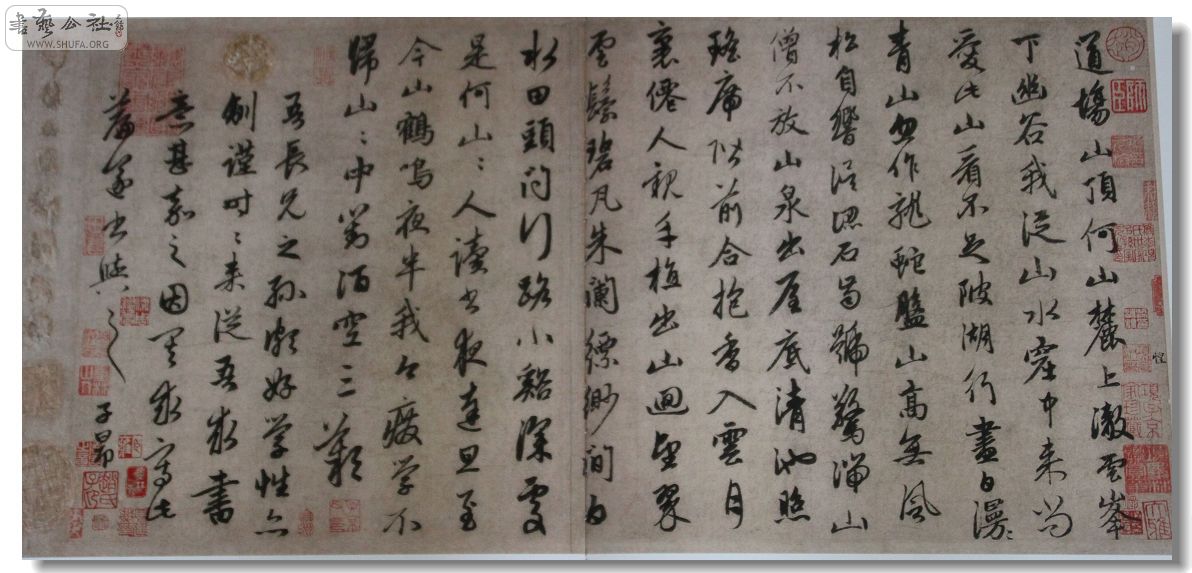 書藝公社
WWW.SHUFA.ORG
道場山頂何山麓上徹雲峯
下幽谷我從山水窟中來尚
愛此山看不足陂湖行盡白漫〻
青山忽作龍蛇盤山高無風
松自響誤認石齒號驚湍山
僧不放山泉出屋底清池照
瑤席階前合抱香入雲月
裏僊人親手植出山迴望翠
雲鬟碧瓦朱闌縹緲間白
水田頭問行路小谿深處
是何山〻人讀書夜達旦至
今山鶴鳴夜半我今廢學不
歸山〻中對酒空三歎
吾長兄之孫頗好學性亦
謹時〻來從吾求書
意甚嘉之因其求寫此
篇遂書與之
子昂